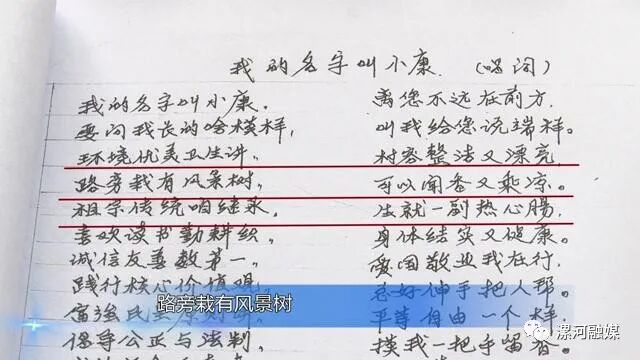 我的名字叫小康。（唱词）
我的名字叫小康。 离您不远在前方，
要问我长的啥模样， 叫我给您说端样。
环境优美卫生讲。 村容整洁又漂亮，
路旁栽有风景树， 可以闻香又乘凉。
祖宗传统咱继承， 生就一副热心腸，
喜欢读书勤耕织， 身体结实又健康。
诚信友善数第一， 爱国敬业我在行，
践行核心价值观， 总好伸手把人帮。
富强民主 平等自由一个样，
倡导公正与法制， 摸我一把手留香
路旁栽有风景树
漯河融媒